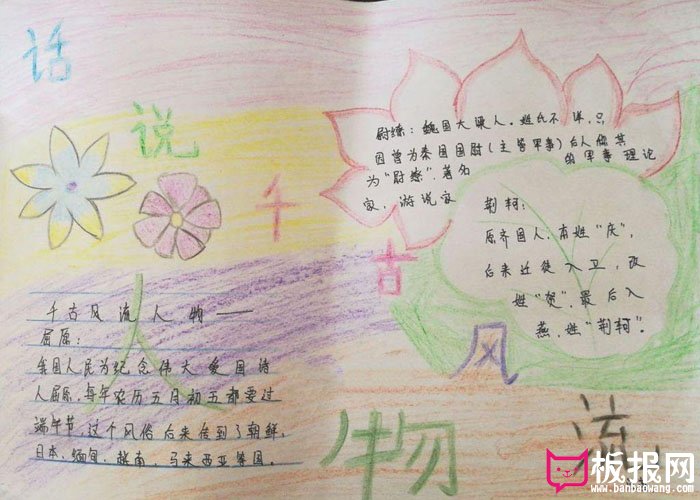 话
说
千
古
风
流
人
物
尉缭：魏国大梁人。姓氏不详，只
因曾为秦国国尉（主管军事）后人称其
为"尉缭"著名的军事理论
家，游说家
荆柯：
原齐国人，本姓"庆"，
后来迁徙入卫，改
姓"贺"，最后入
燕，姓"荆柯"。
千古风流人物——
屈原：
我国人民为纪念伟大爱国诗
人屈原，每年农历五月初五都要过
端午节，这个风俗后来传到了朝鲜，
日本、缅甸、越南、马来西亚等国。
板报网
www.banbaowang.com